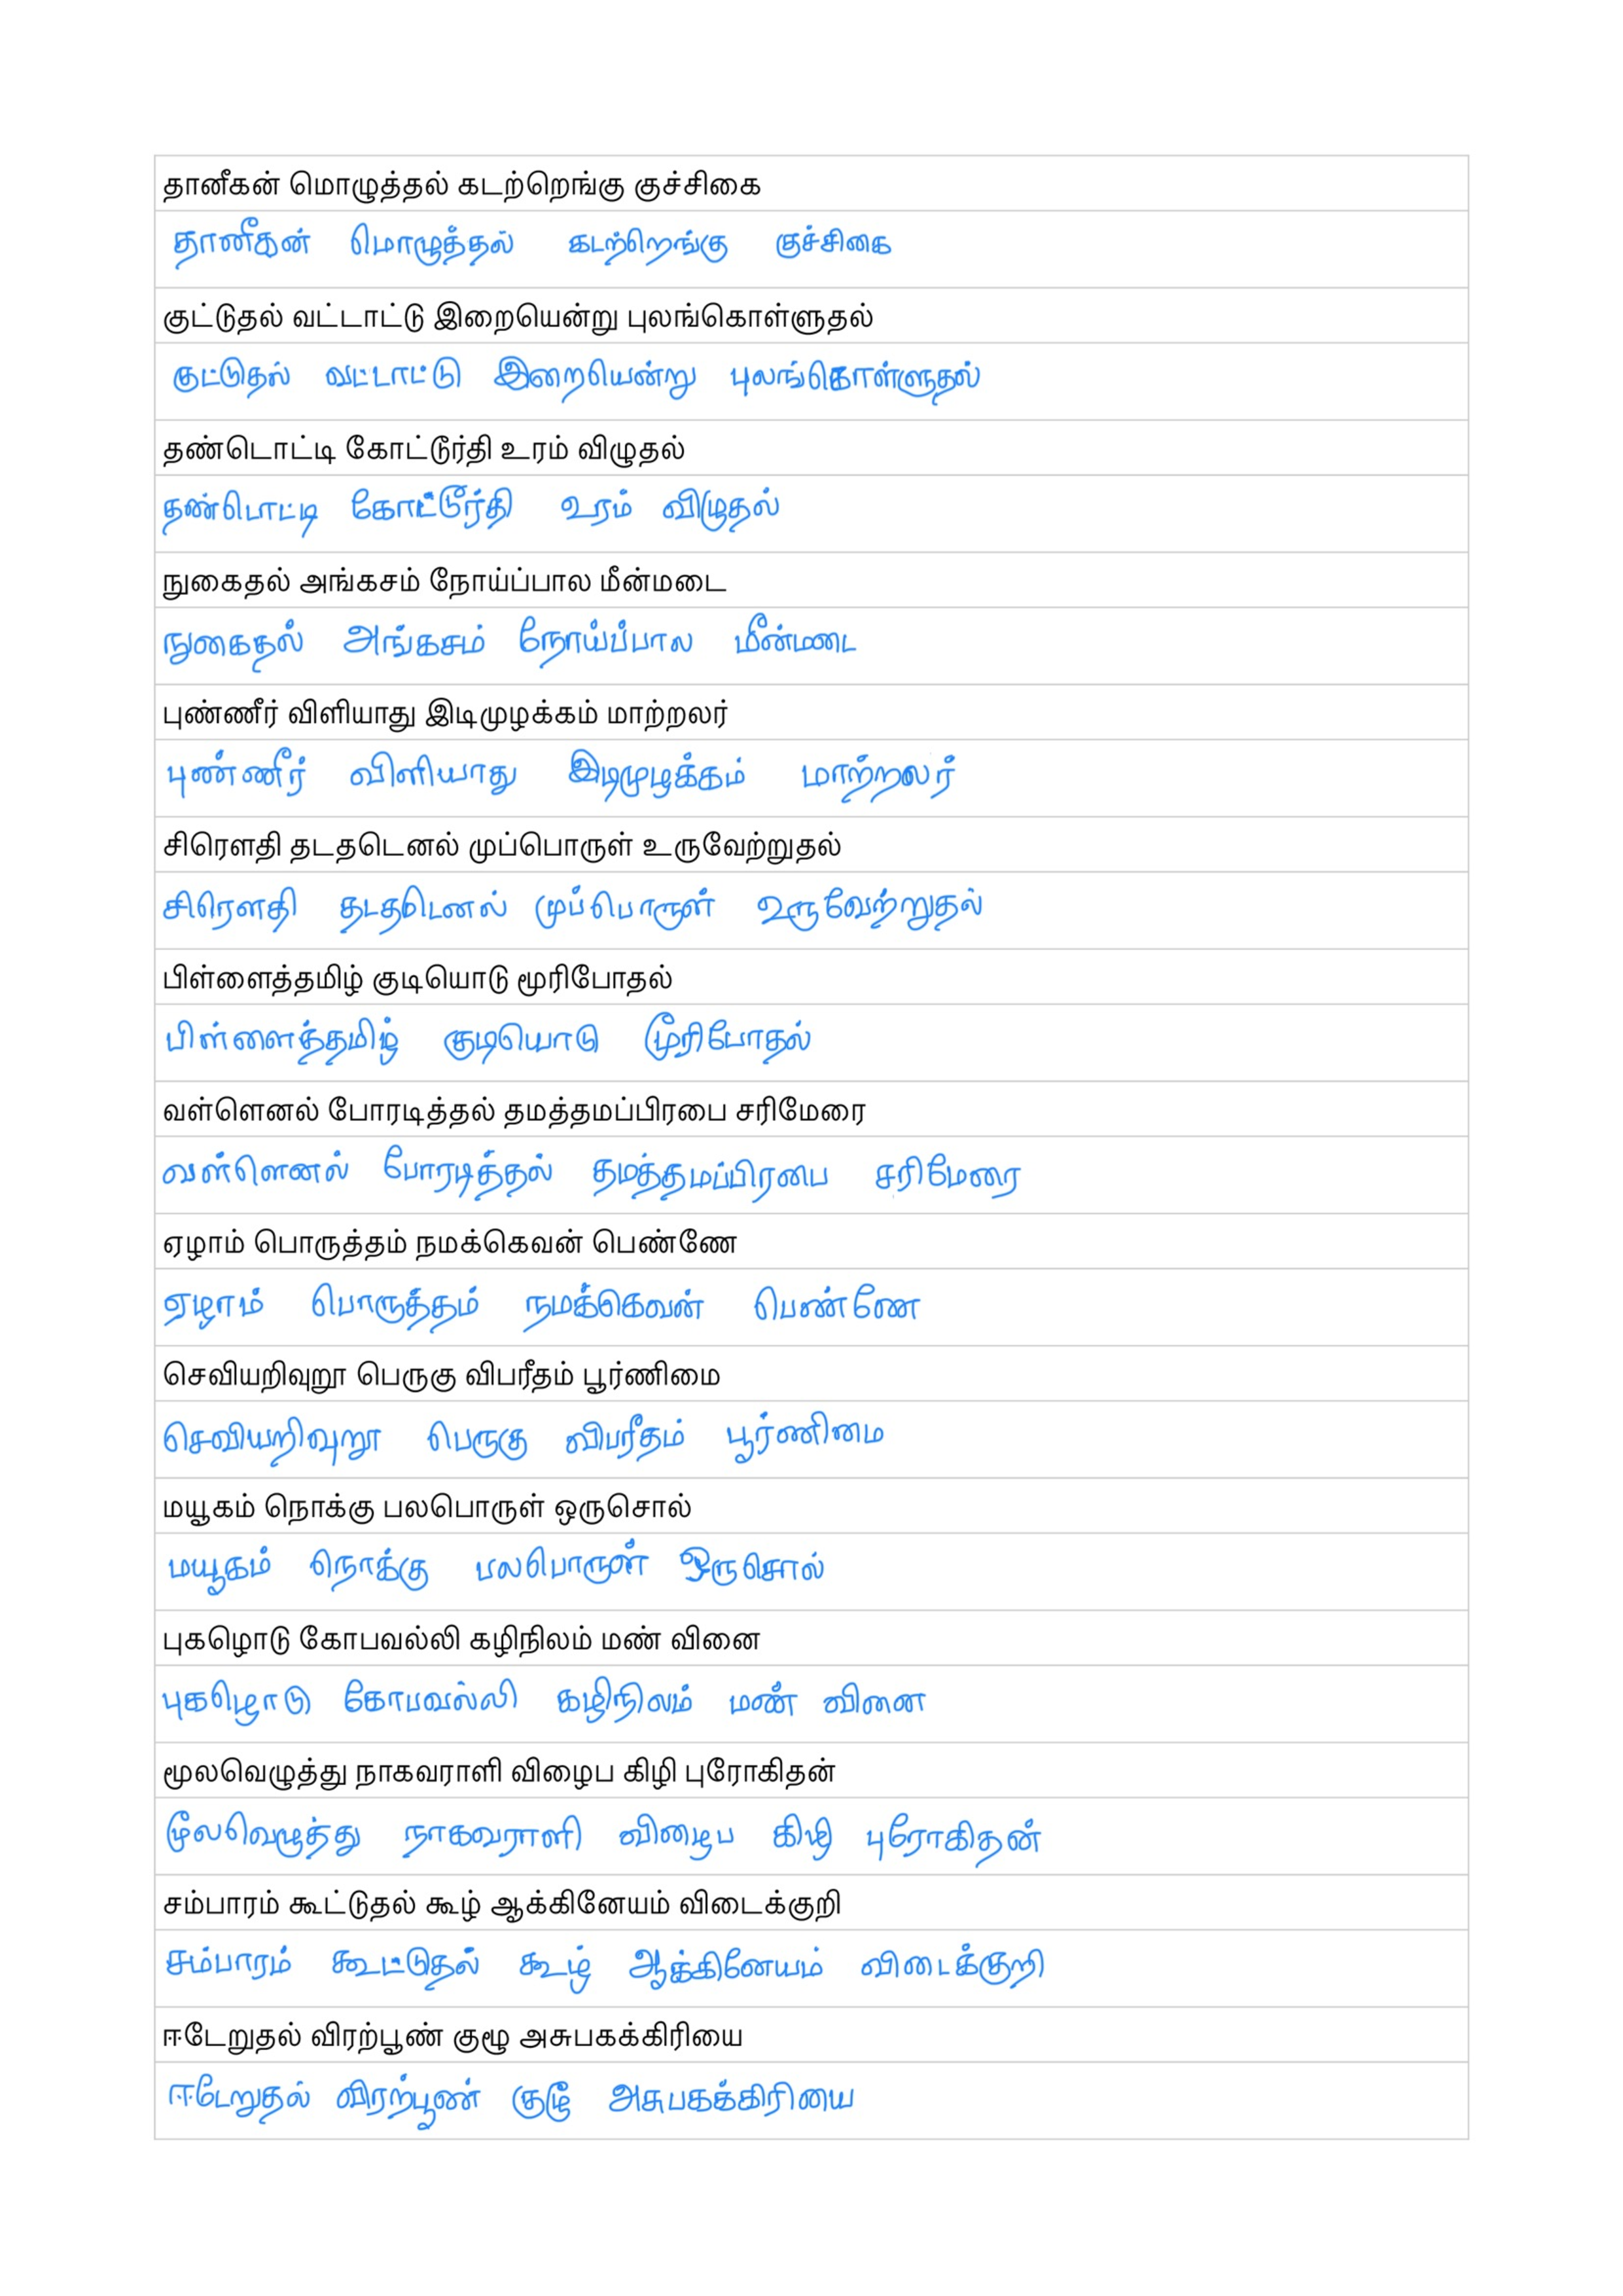 தானீகன் மொழுத்தல் கடற்றெங்கு குச்சிகை
தானீதன் மொழுத்தல் கடற்றெங்கு குச்சிகை
குட்டுதல் வட்டாட்டு இறையென்று புலங்கொள்ளுதல்
குட்டுதல் வட்டாட்டு இறையென்று புலங்கொள்ளுதல்
தண்டொட்டி கோட்டூர்தி உரம் விழுதல்
தண்பொட்டி கோட்டூர்தி உரம் விழுதல்
நுகைதல் அங்கசம் நோய்ப்பால மீன்மடை
நுகைதல் அங்கசம் நோய்ப்பால மீன்மடை
புண்ணீர் விளியாது இடிமுழக்கம் மாற்றலர்
புண்ணீர் விளியாது இடிமுழக்கம் மாற்றலர்
சிரௌதி தடதடெனல் முப்பொருள் உருவேற்றுதல்
சிரௌதி தடதடெனல் முப்பொருள் உருவேற்றுதல்
பிள்ளைத்தமிழ் குடியொடு மூரிபோதல்
பிள்ளைத்தமிழ் குடியொடு மூரிபோதல்
வள்ளெனல் போரடித்தல் தமத்தமப்பிரபை சரிமேரை
வள்ளெனல் போரடித்தல் தமத்தமப்பிரபை சரிமேரை
ஏழாம் பொருத்தம் நமக்கெவன் பெண்ணே
ஏழாம் பொருத்தம் நமக்கெவன் பெண்ணே
செவியறிவுறூ பெருகு விபரீதம் பூர்ணிமை
செவியறிவுறூ பெருகு விபரீதம் பூர்ணிமை
மயூகம் நொக்கு பலபொருள் ஒருசொல்
மயூகம் நொக்கு பலபொருள் ஒருசொல்
புகழொடு கோபவல்லி கழிநிலம் மண் வினை
புகழொடு கோபவல்லி கழிநிலம் மண் வினை
மூலவெழுத்து நாகவராளி விழைப கிழி புரோகிதன்
மூலவெழுத்து நாகவராளி விழைப கிழி புரோகிதன்
சம்பாரம் கூட்டுதல் கூழ் ஆக்கினேயம் விடைக்குறி
சம்பாரம் கூட்டுதல் கூழ் ஆக்கினேயம் விடைக்குறி
ஈடேறுதல் விரற்பூண் குழூ அசுபகக்கிரியை
ஈடேறுதல் விரற்பூண் குழூ அசுபகக்கிரியை